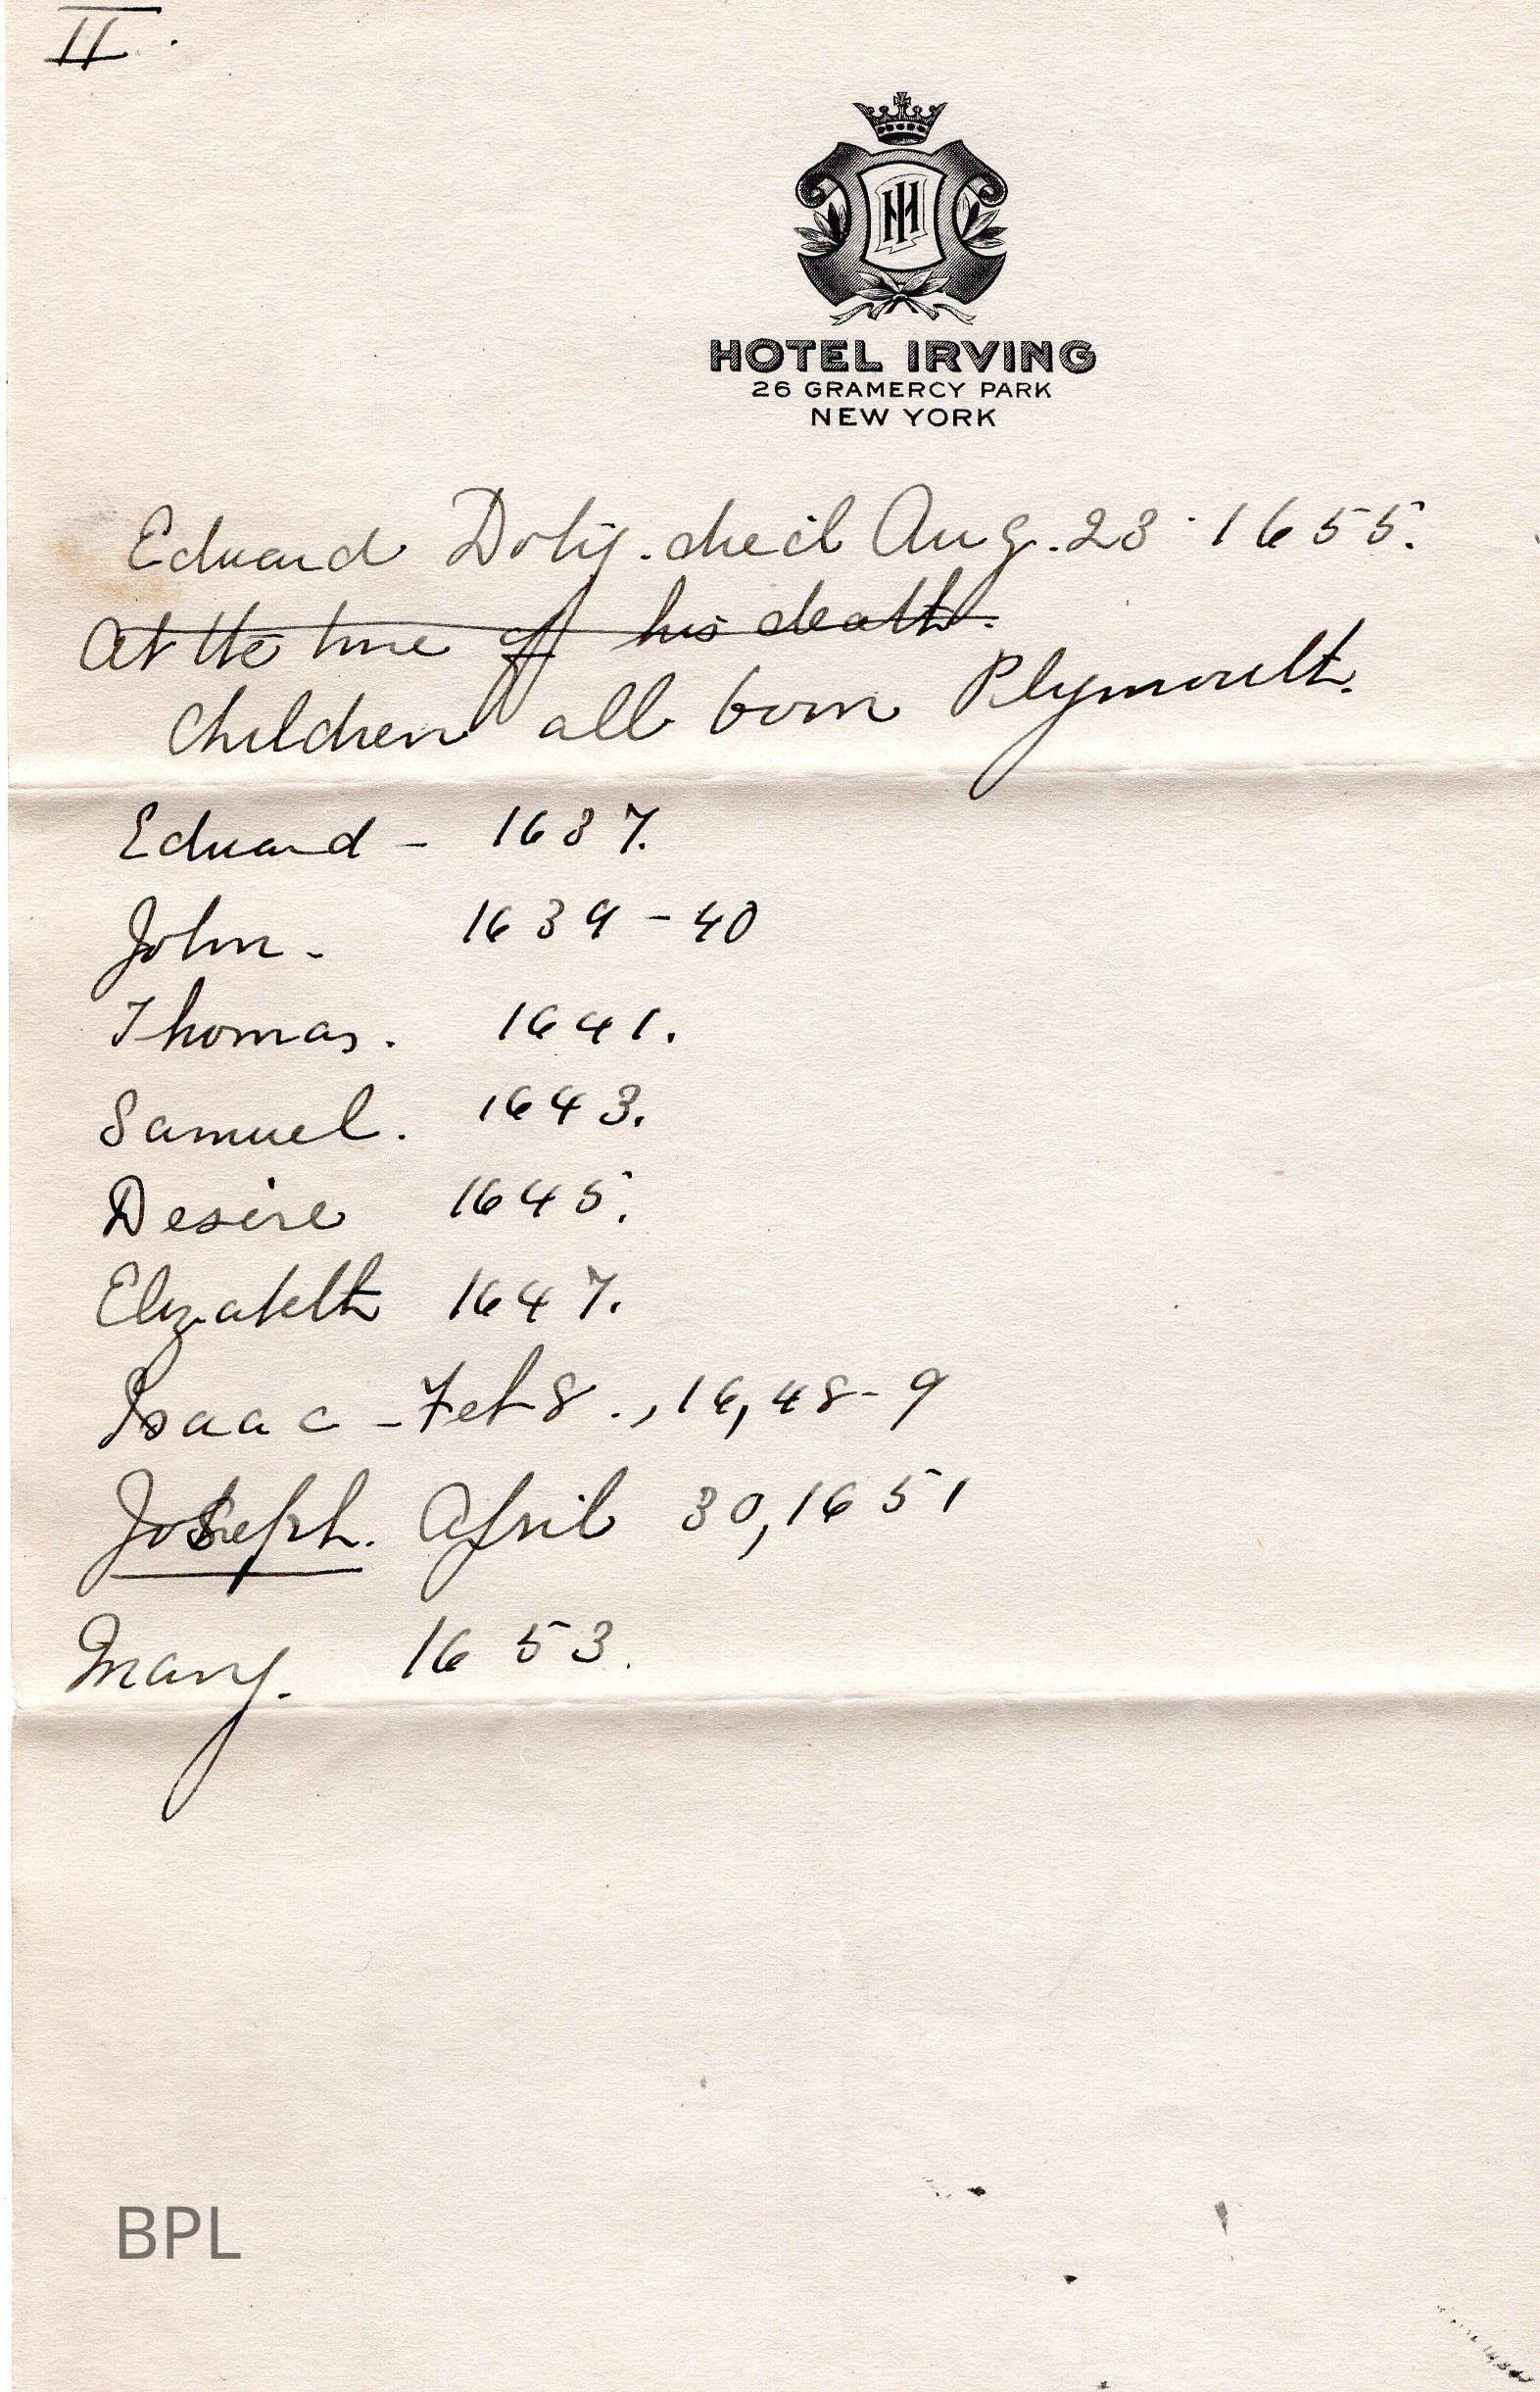 II.
HI
HOTEL IRVING
26 GRAMERCY PARK
NEW YORK
Edward Doty. died Aug. 23 · 1655.
At the time of his death.
Children all born Plymouth.
Edward - 1637.
John. - 1639-40
Thomas. 1641.
Samuel. 1643.
Desire 1645.
Elizabeth 1647.
Isaac - Feb 8., 16,48-9
Joseph. April 30, 1651
Mary. 1653.
BPL